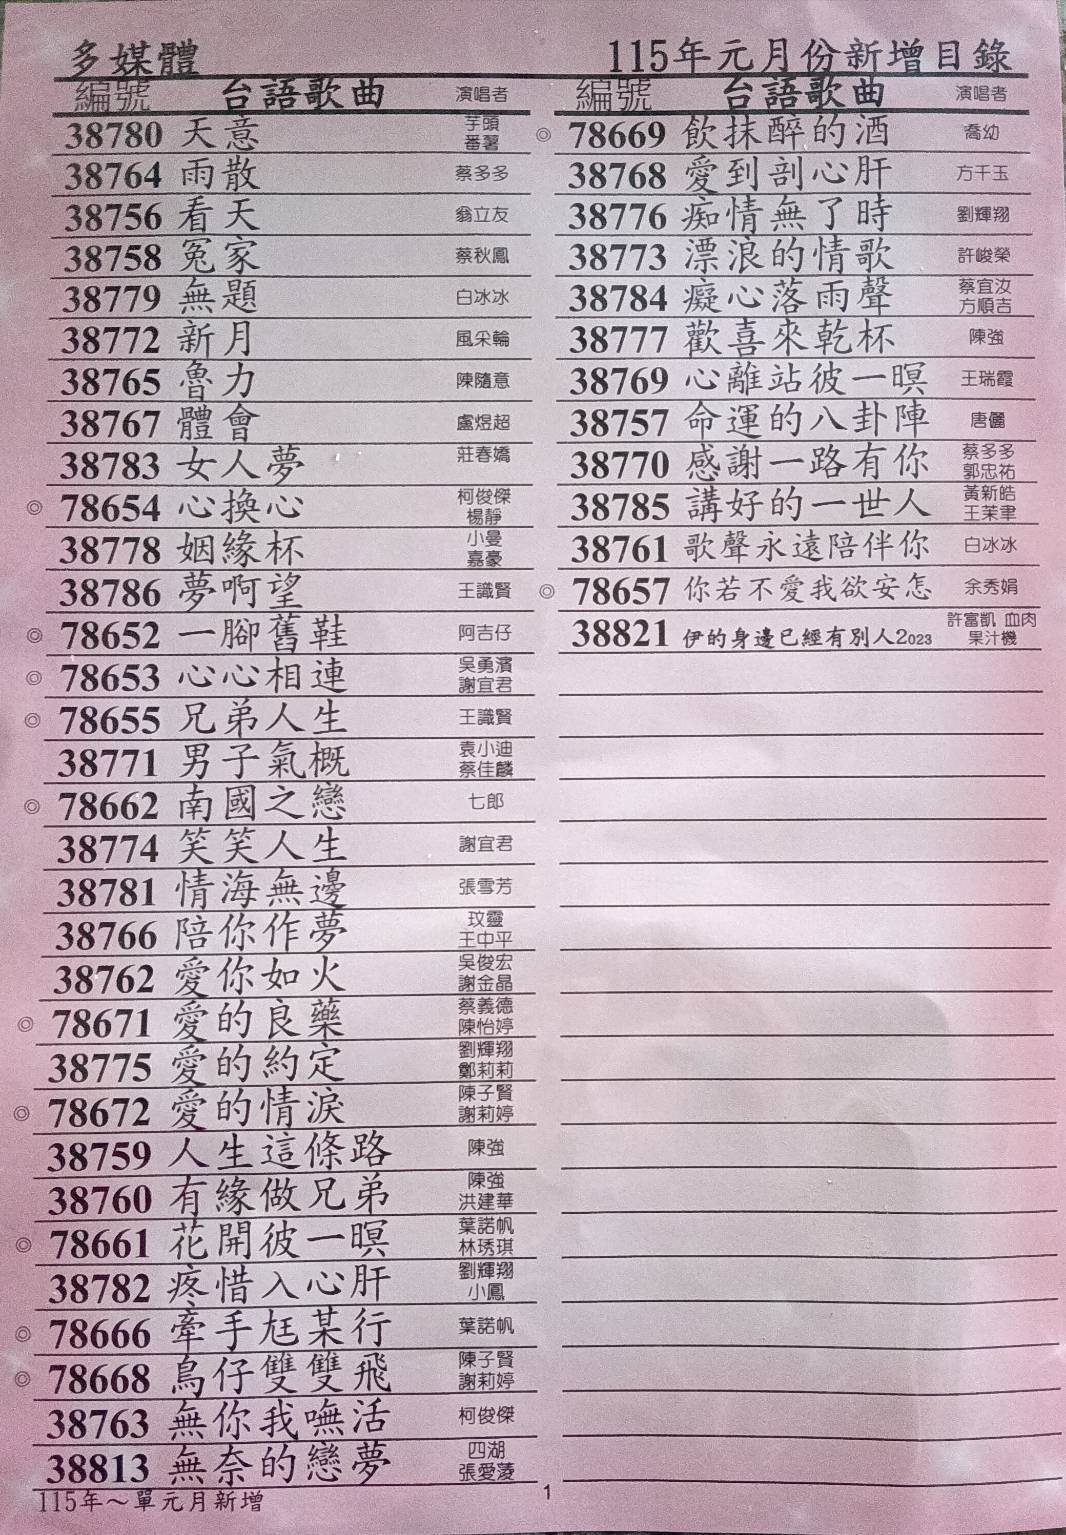 多媒體 115年元月份新增目錄
編號 台語歌曲 演唱者
38780 天意 芋頭 番薯
38764 雨散 蔡多多
38756 看天 翁立友
38758 冤家 蔡秋鳳
38779 無題 白冰冰
38772 新月 風采輪
38765 魯力 陳隨意
38767 體會 盧煜超
38783 女人夢 莊春嬌
◎ 78654 心換心 柯俊傑 楊靜
38778 姻緣杯 小曼 嘉豪
38786 夢啊望 王識賢
◎ 78652 一腳舊鞋 阿吉仔
◎ 78653 心心相連 吳勇濱 謝宜君
◎ 78655 兄弟人生 王識賢
38771 男子氣概 袁小迪 蔡佳麟
◎ 78662 南國之戀 七郎
38774 笑笑人生 謝宜君
38781 情海無邊 張雪芳
38766 陪你作夢 玟靈 王中平
38762 愛你如火 吳俊宏 謝金晶
◎ 78671 愛的良藥 蔡義德 陳怡婷
38775 愛的約定 劉輝翔 鄭莉莉
◎ 78672 愛的情淚 陳子賢 謝莉婷
38759 人生這條路 陳強
38760 有緣做兄弟 陳強 洪建華
◎ 78661 花開彼一暝 葉諾帆 林琇琪
38782 疼惜入心肝 劉輝翔 小鳳
◎ 78666 牽手尪某行 葉諾帆
◎ 78668 鳥仔雙雙飛 陳子賢 謝莉婷
38763 無你我嘸活 柯俊傑
38813 無奈的戀夢 四湖 張愛蓤
115年～單元月新增
編號 台語歌曲 演唱者
◎ 78669 飲抹醉的酒 喬幼
38768 愛到剖心肝 方千玉
38776 痴情無了時 劉輝翔
38773 漂浪的情歌 許峻榮
38784 癡心落雨聲 蔡宜汝 方順吉
38777 歡喜來乾杯 陳強
38769 心離站彼一暝 王瑞霞
38757 命運的八卦陣 唐儷
38770 感謝一路有你 蔡多多 郭忠祐
38785 講好的一世人 黃新皓 王茉聿
38761 歌聲永遠陪伴你 白冰冰
◎ 78657 你若不愛我欲安怎 余秀娟
38821 伊的身邊已經有別人2023 許富凱 血肉果汁機
1